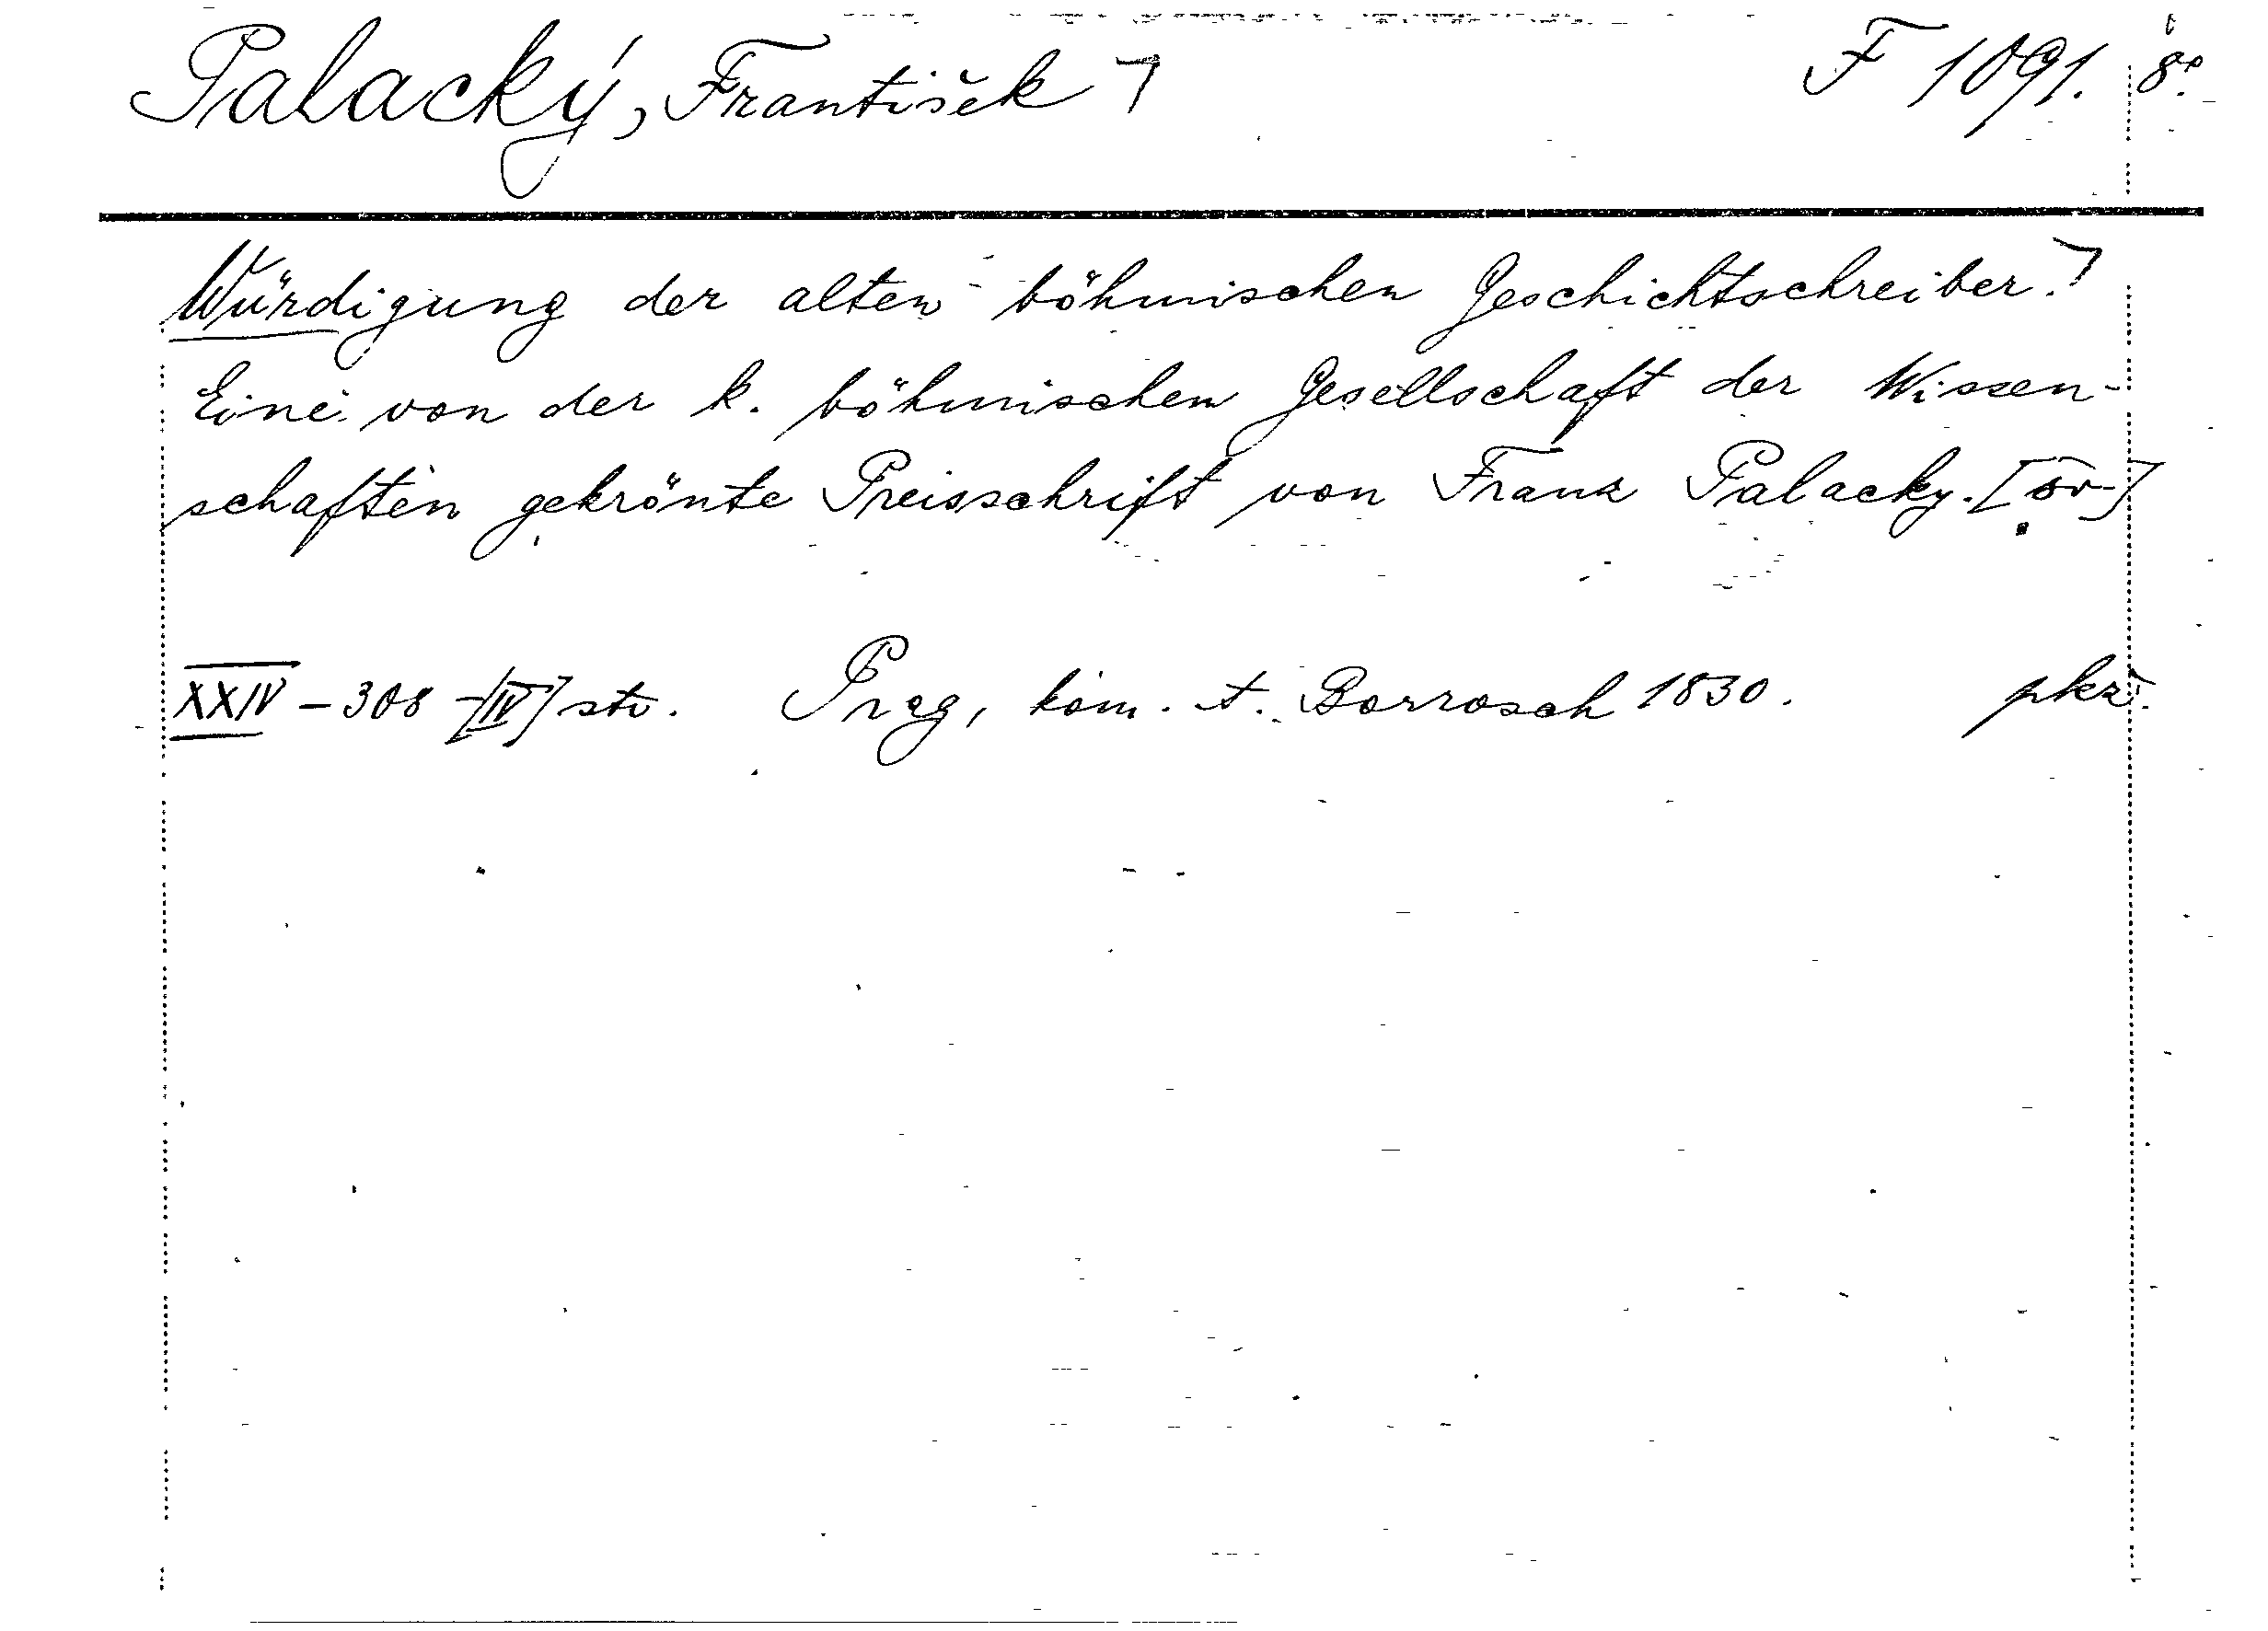 Palacký, František ⏋ F 1091. 8°
Würdigung der alten böhmischen Geschichtschreiber.⏋
Eine von der k. böhmischen Gesellschaft der Wissen-
schaften gekrönte Preisschrift von Franz Palacky.
XXIV - 308 -[IV] str. Prag, kom. A. Borrosch 1830. pkž.